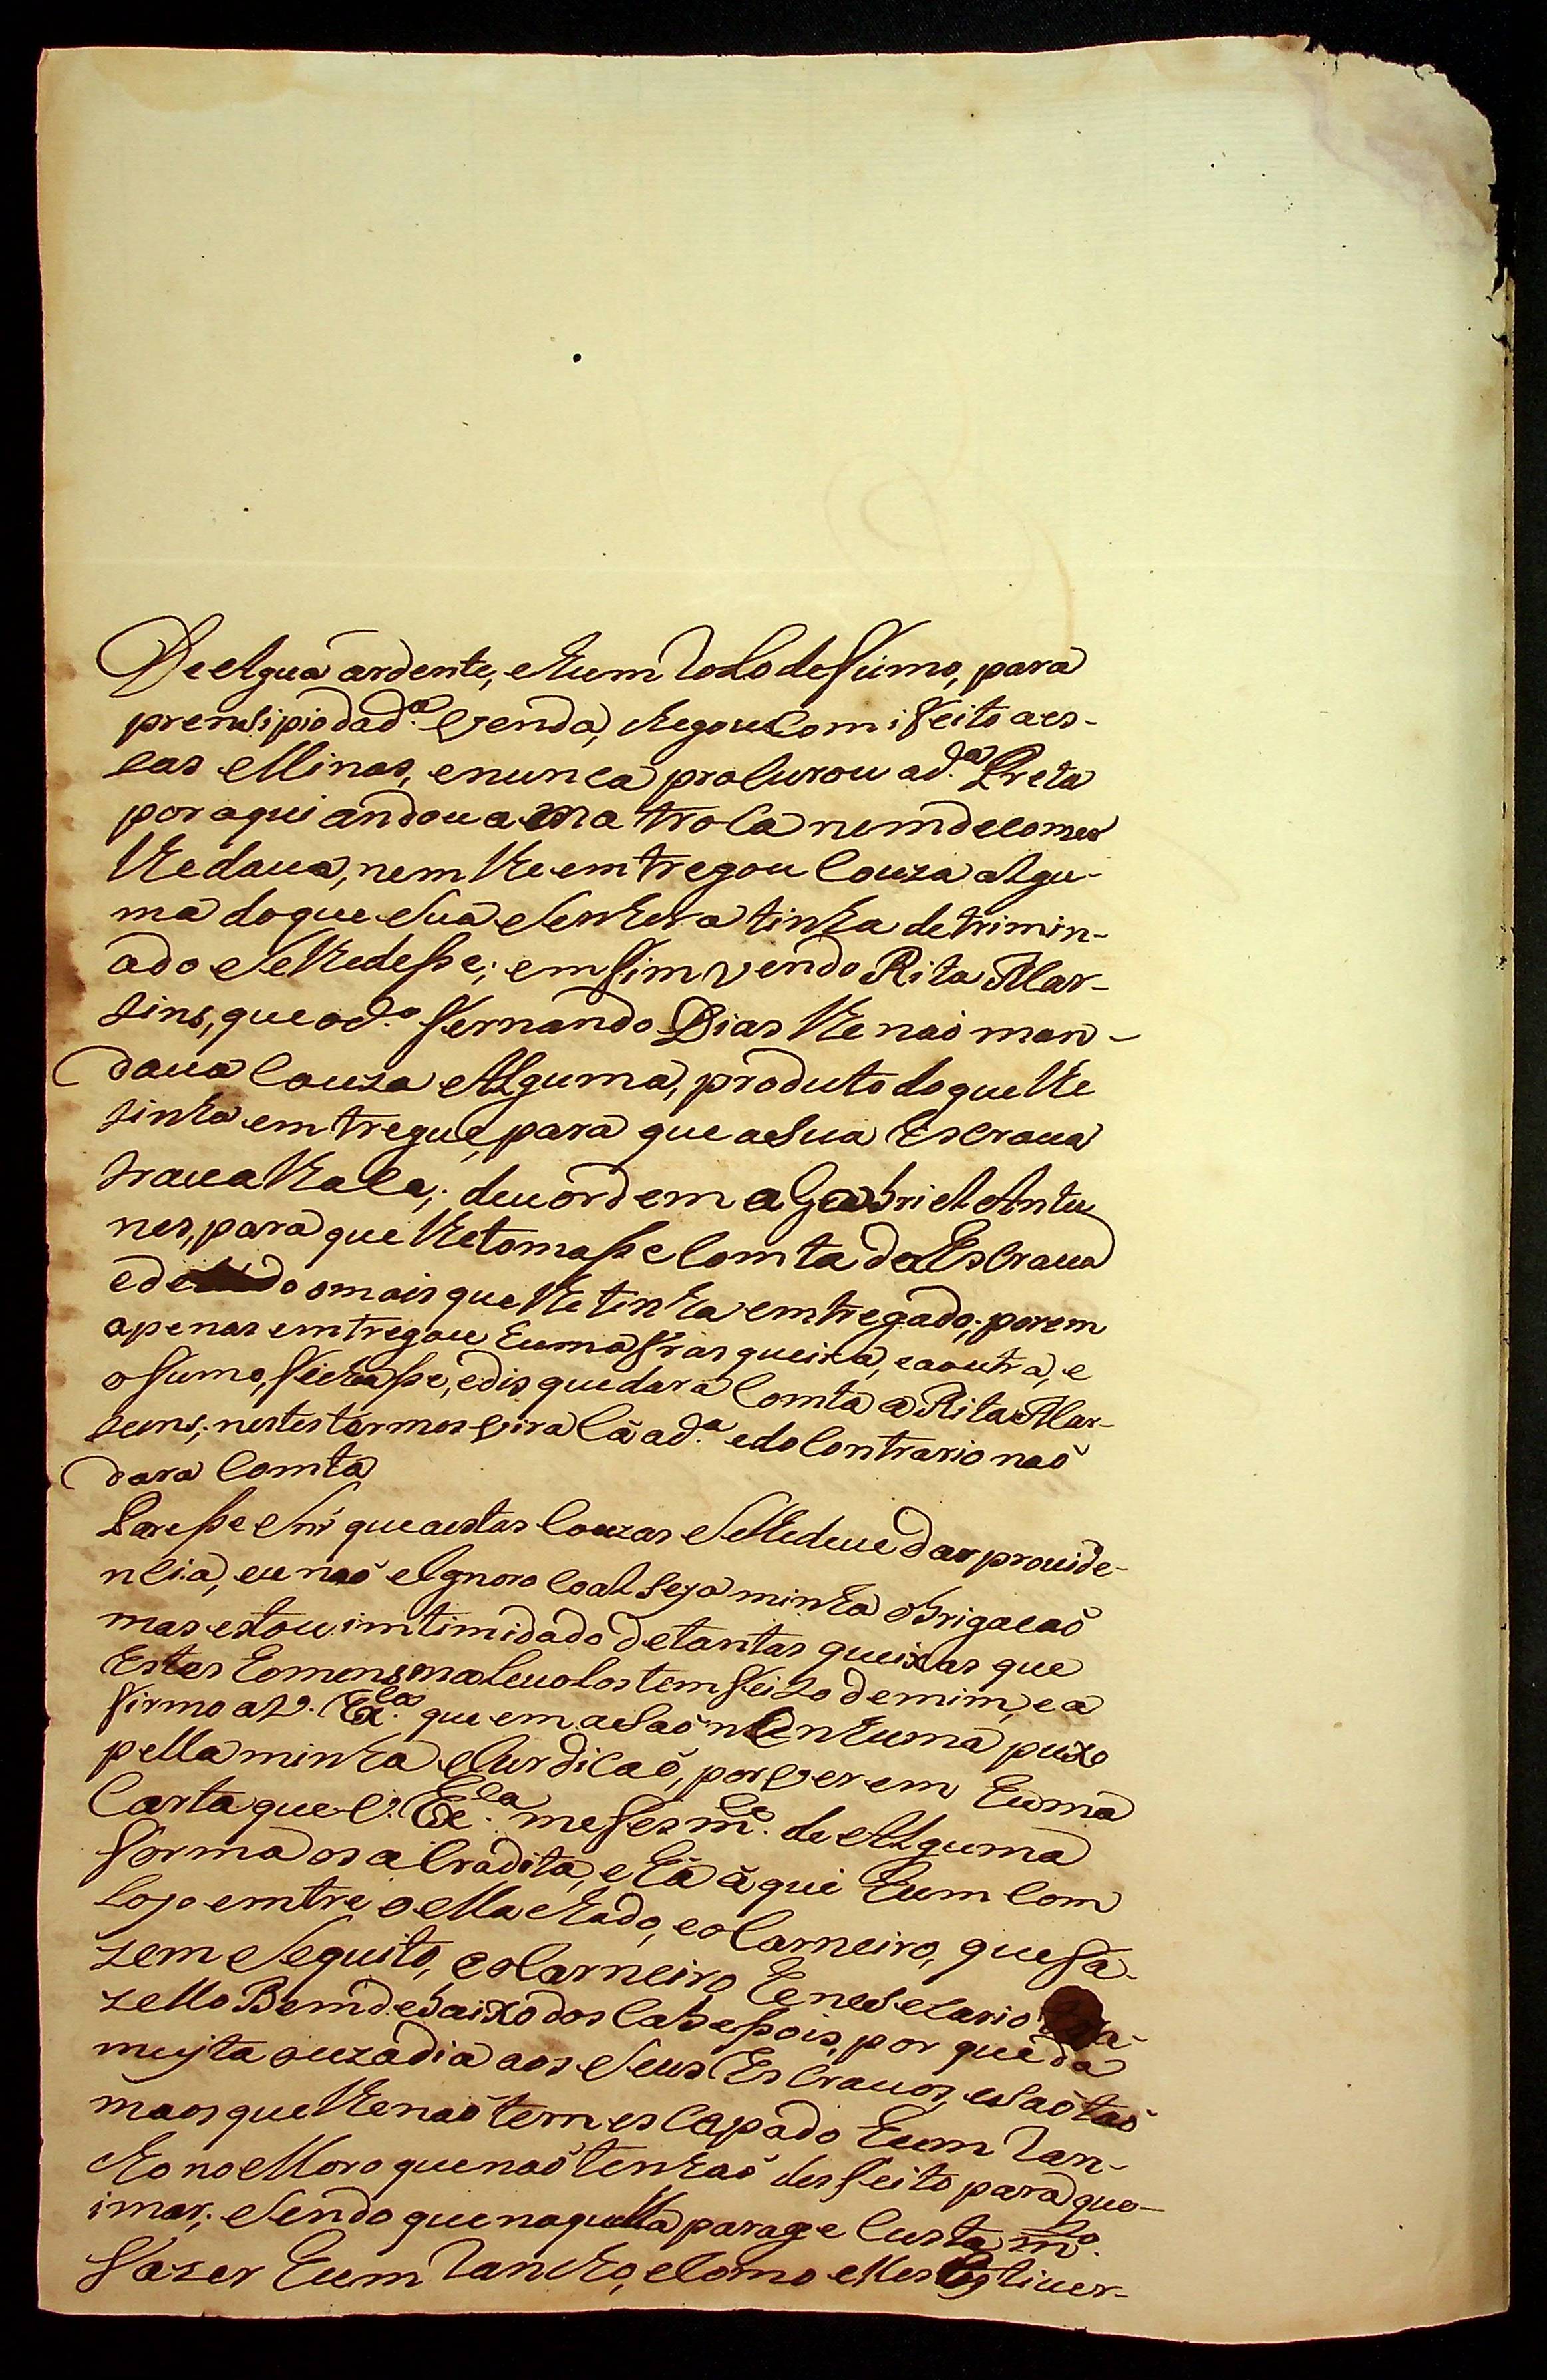 De Agua ardente, e hum rolo de fumo, para
prensipio da d.ª venda, chegou com ifeito a es-
cas Minas, e nunca procurou a d.ª Preta
por aqui andou a matroca nem de comer
lhe daua, nem lhe emtregou couza algu-
ma do que sua senhora tinha detrimin-
ado se lhe desse; emfim vendo Rita Mar-
tins, que o d.º Fernando Dias lhe naõ man-
daua couza Alguma, produto do que lhe
tinha emtregue, para que a sua Escraua
traualhace; deu ordem a Gabriel Antu
nes, para que lhe tomasse comta da Escraua
e de do o mais que lhe tinha emtregado; porem
apenas emtregou huma frasqueira, e a outra, e
o fumo, fichasse, e dis que dara comta a Rita Mar-
tins; nestes termos vira cá a d.ª e do contrario naõ
dara comta
Paresse Snr̃ que a estas couzas se lhe deue dar prouide-
ncia, eu naõ Ignoro coal seja minha obrigacaõ
mas estou imtimidado de tantas queixas que
Estes homens maleuolos tem feito de mim, e a
firmo a V. Ex.cia que em acsaõ nenhuma puxo
pella minha Jurdicaõ, por verem huma
Carta que V. Ex.cia me fes m.ce de Alguma
forma os acradita, e há aqui hum com
lojo emtre o Machado, e o Carneiro, que fa-
zem seguito, e o Carneiro he nesecario
zello Bem debaixo dos cabessois, por que da
muyta ouzadia aos seus Escrauos, e saõ taõ
maos que lhe naõ tem escapado hum ran-
cho no Moro que naõ tenhaõ desfeito para que-
imar; sendo que naquella parage custa m.to
fazer hum rancho, e como elles Estiuer-